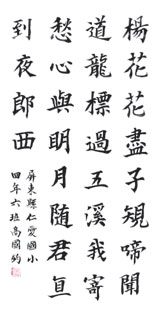 楊花花盡子䂓啼聞
道龍標過五溪我寄
愁心與眀月随君直
到夜郎西
屏東縣仁愛國小
四年六班高國鈞